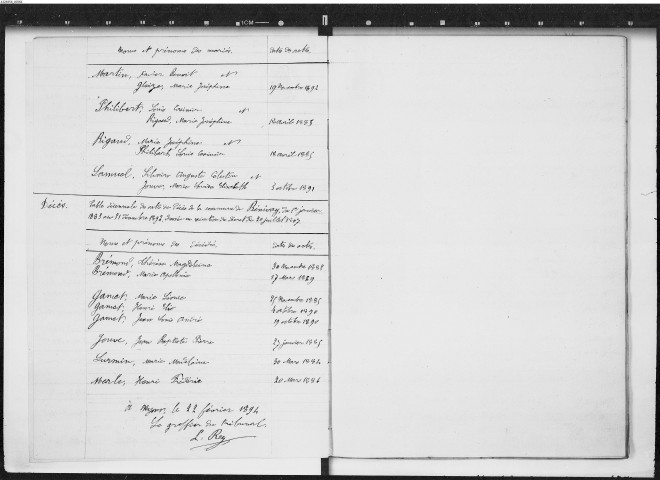 Noms et prénoms des mariés. Date des actes.
Martin, Xavier Benoit et
Gleize, Marie Joséphine 19 novembre 1892
Philibert, Louis Casimir et
Rigaud, Marie Joséphine 18 avril 1885
Rigaud, Marie Joséphine et
Philibert, Louis Casimir 18 avril 1885
Samuel, Auguste Célestin et
Jouve, Marie Elisabeth 3 octobre 1891
Décès. Table décennale des actes de Décès de la commune de Bénivay, du 1er janvier
1883 au 31 Décembre 1892, dressée en exécution du décret du 20 juillet 1807
Noms et prénoms des Décédés Date des actes.
Brémond, Thérèse Magdeleine 30 novembre 1888
Brémond, Marie 17 Mars 1889
Gamet, Marie 25 novembre 1885
Gamet, Henri 4 octobre 1890
Gamet, Jean Louis André 19 octobre 1890
Jouve, Jean Baptiste Pierre 23 janvier 1885
Marie Madeleine 20 Mars
Merle, Henri Frédéric 20 Mars 1886
A Nyons, le 22 février 1894
Le greffier du tribunal,
L. Rey